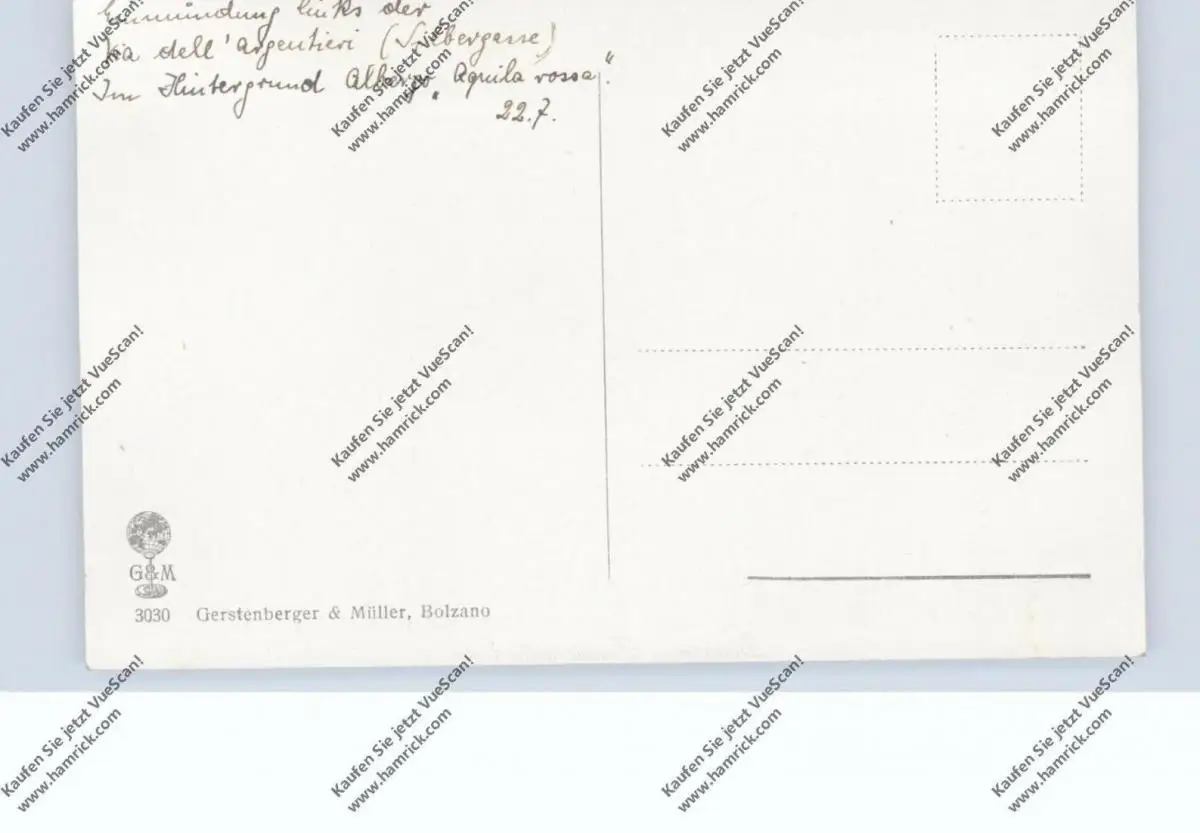 Einmündung links der
Via dell'Argentieri (Silbergasse)
Im Hintergrund Albergo „Aquila rossa".
22.7.
G&M
3030 Gerstenberger & Müller, Bolzano
Kaufen Sie jetzt VueScan!
www.hamrick.com
Kaufen Sie jetzt VueScan!
www.hamrick.com
Kaufen Sie jetzt VueScan!
www.hamrick.com
Kaufen Sie jetzt VueScan!
www.hamrick.com
Kaufen Sie jetzt VueScan!
www.hamrick.com
Kaufen Sie jetzt VueScan!
www.hamrick.com
Kaufen Sie jetzt VueScan!
www.hamrick.com
Kaufen Sie jetzt VueScan!
www.hamrick.com
Kaufen Sie jetzt VueScan!
www.hamrick.com
Kaufen Sie jetzt VueScan!
www.hamrick.com
Kaufen Sie jetzt VueScan!
www.hamrick.com
Kaufen Sie jetzt VueScan!
www.hamrick.com